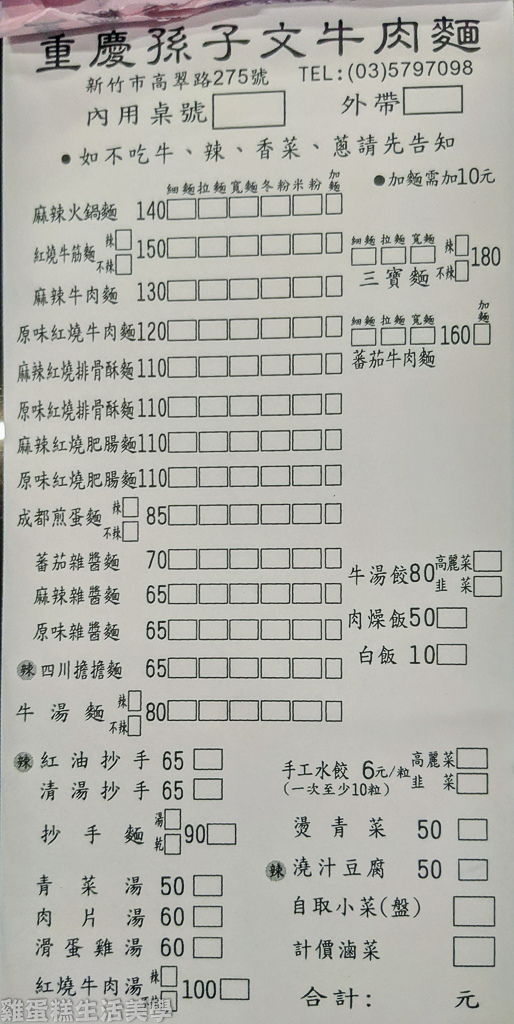 重慶孫子文牛肉麵
新竹市高翠路275號 TEL:(03)5797098
內用桌號 外帶
•如不吃牛、辣、香菜、蔥請先告知
細麵 拉麵 寬麵 冬粉 米粉 加麵 •加麵需加10元
麻辣火鍋麵 140
紅燒牛筋麵 辣 不辣 150
細麵 拉麵 寬麵 辣 不辣 180
三寶麵
麻辣牛肉麵 130
原味紅燒牛肉麵 120
細麵 拉麵 寬麵 160 加麵
蕃茄牛肉麵
麻辣紅燒排骨酥麵 110
原味紅燒排骨酥麵 110
麻辣紅燒肥腸麵 110
原味紅燒肥腸麵 110
成都煎蛋麵 辣 不辣 85
蕃茄雜醬麵 70
牛湯餃 80 高麗菜 韭菜
麻辣雜醬麵 65
肉燥飯 50
原味雜醬麵 65
白飯 10
辣 四川擔擔麵 65
牛湯麵 辣 不辣 80
辣 紅油抄手 65
手工水餃 6元/粒 高麗菜 韭菜
(一次至少10粒)
清湯抄手 65
抄手麵 湯 乾 90
燙青菜 50
辣 澆汁豆腐 50
青菜湯 50
自取小菜(盤)
肉片湯 60
滑蛋雞湯 60
計價滷菜
紅燒牛肉湯 辣 不辣 100
合計: 元
雞蛋糕生活美學